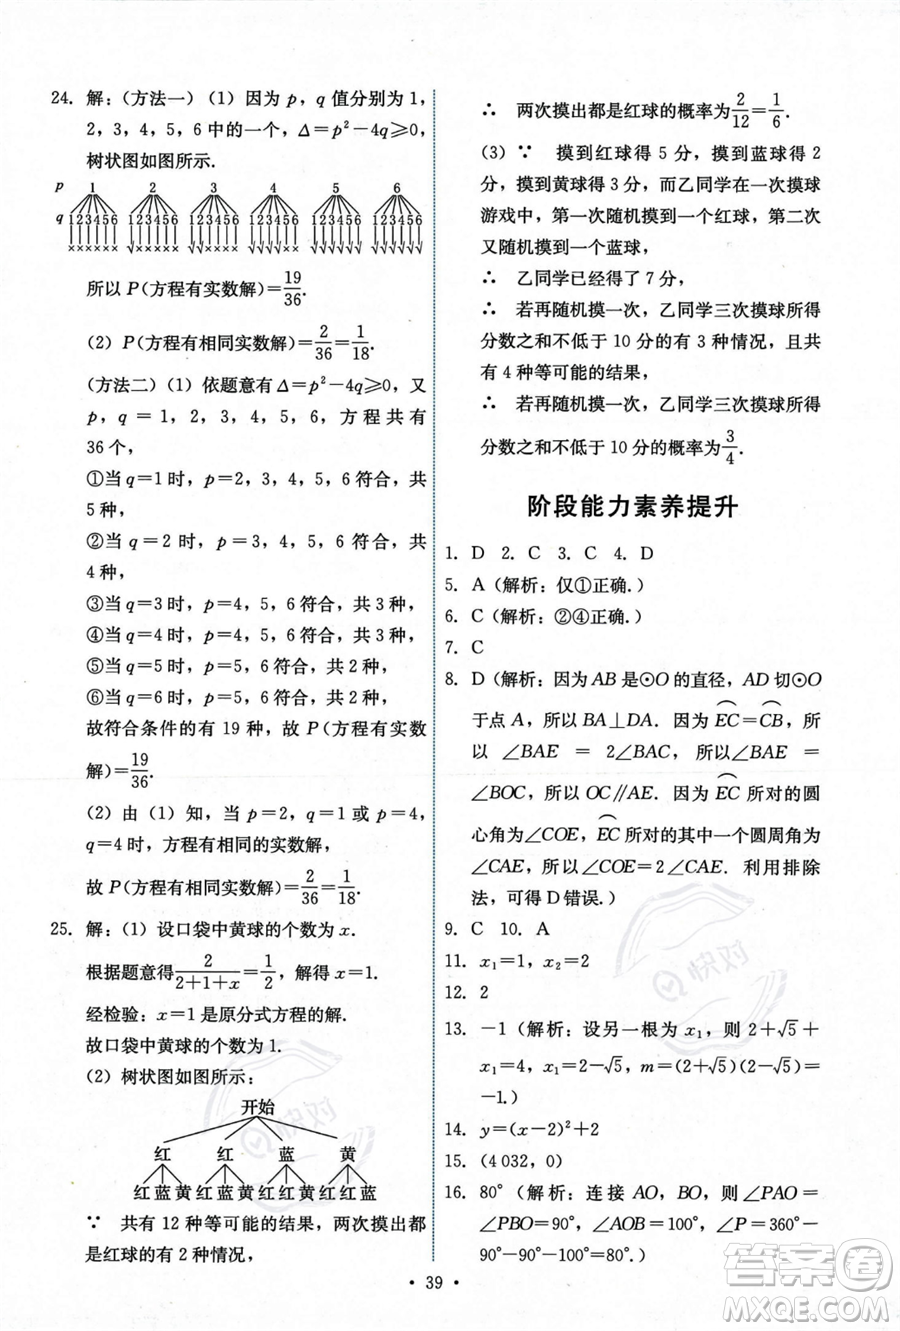 24. 解:(方法一)(1)因为 p,q 值分别为 1,
2,3,4,5,6 中的一个,Δ=p²-4q≥0,
树状图如图所示.
p 1 2 3 4 5 6
q 123456 123456 123456 123456 123456 123456
×××××× √××××× √√×××× √√√√×× √√√√√√ √√√√√√
所以 P(方程有实数解)=19/36.
(2)P(方程有相同实数解)=2/36=1/18.
(方法二)(1)依题意有 Δ=p²-4q≥0,又
p,q=1,2,3,4,5,6,方程共有
36 个,
①当 q=1 时,p=2,3,4,5,6 符合,共
5 种,
②当 q=2 时,p=3,4,5,6 符合,共
4 种,
③当 q=3 时,p=4,5,6 符合,共 3 种,
④当 q=4 时,p=4,5,6 符合,共 3 种,
⑤当 q=5 时,p=5,6 符合,共 2 种,
⑥当 q=6 时,p=5,6 符合,共 2 种,
故符合条件的有 19 种,故 P(方程有实数
解)=19/36.
(2)由(1)知,当 p=2,q=1 或 p=4,
q=4 时,方程有相同的实数解,
故 P(方程有相同实数解)=2/36=1/18.
25. 解:(1)设口袋中黄球的个数为 x.
根据题意得2/(2+1+x)=1/2,解得 x=1.
经检验:x=1 是原分式方程的解.
故口袋中黄球的个数为 1.
(2)树状图如图所示:
开始
红 红 蓝 黄
红蓝黄 红蓝黄 红红黄 红红蓝
∵ 共有 12 种等可能的结果,两次摸出都
是红球的有 2 种情况,
∴ 两次摸出都是红球的概率为2/12=1/6.
(3)∵ 摸到红球得 5 分,摸到蓝球得 2
分,摸到黄球得 3 分,而乙同学在一次摸球
游戏中,第一次随机摸到一个红球,第二次
又随机摸到一个蓝球,
∴ 乙同学已经得了 7 分,
∴ 若再随机摸一次,乙同学三次摸球所得
分数之和不低于 10 分的有 3 种情况,且共
有 4 种等可能的结果,
∴ 若再随机摸一次,乙同学三次摸球所得
分数之和不低于 10 分的概率为3/4.
阶段能力素养提升
1. D 2. C 3. C 4. D
5. A(解析:仅①正确.)
6. C(解析:②④正确.)
7. C
8. D(解析:因为 AB 是⊙O 的直径,AD 切⊙O
于点 A,所以 BA⊥DA.因为 ⌒EC=⌒CB,所
以 ∠BAE = 2∠BAC,所以∠BAE =
∠BOC,所以 OC∥AE.因为⌒EC所对的圆
心角为∠COE,⌒EC所对的其中一个圆周角为
∠CAE,所以∠COE=2∠CAE.利用排除
法,可得 D 错误.)
9. C 10. A
11. x₁=1,x₂=2
12. 2
13. -1(解析:设另一根为 x₁,则 2+√5+
x₁=4,x₁=2-√5,m=(2+√5)(2-√5)=
-1.)
14. y=(x-2)²+2
15. (4 032,0)
16. 80°(解析:连接 AO,BO,则∠PAO=
∠PBO=90°,∠AOB=100°,∠P=360°-
90°-90°-100°=80°.)
· 39 ·
快对
快对
答案圈
MXQE.COM